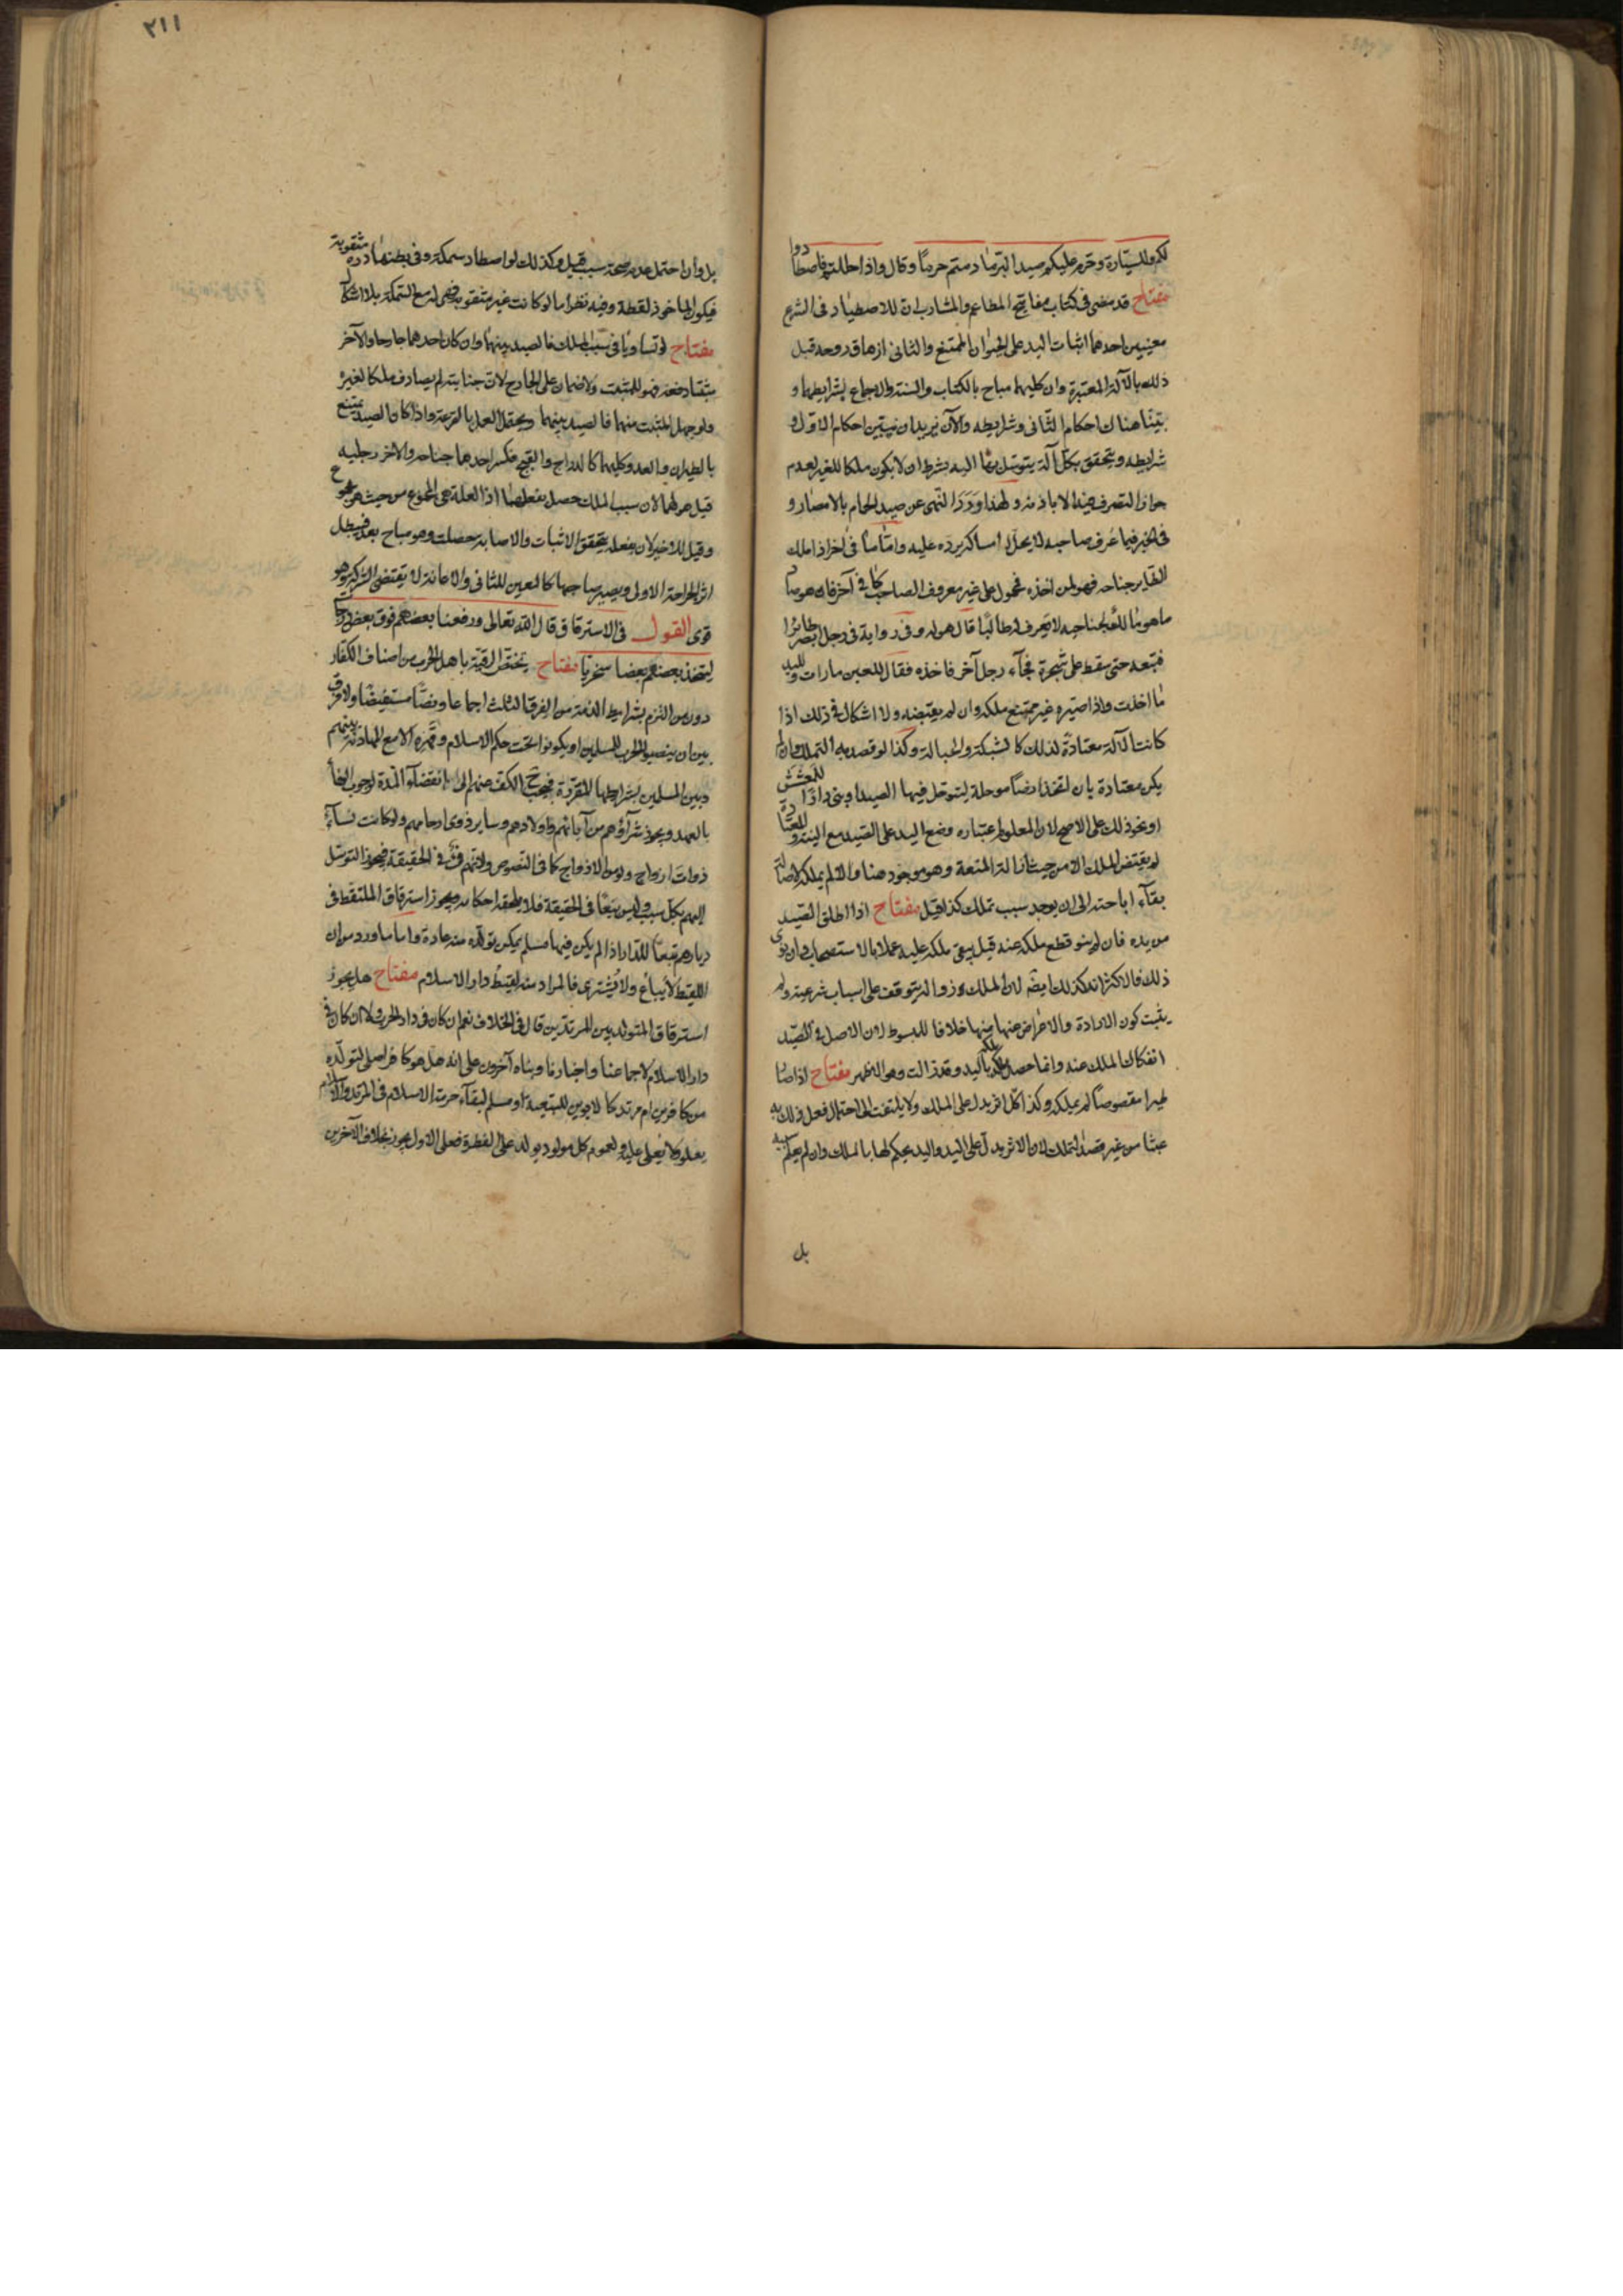 لكم وللسيّارة وحرم عليكم صيد البرّ ما دمتم حرمًا وقال واذا حللتم فاصطادوا
مفتاح قد مضى فى كتاب مفاتيح المطاعم والمشارب ان للاصطياد فى الشرع
معنيين احدهما اثبات اليد على الحيوان الممتنع والثانى ازهاق روحه قبل
ذلك بالآلة المعتبرة وان كليهما مباح بالكتاب والسنة والاجماع بشرايطهما و
بيّنا هناك احكام الثانى وشرايطه والآن نريد ان نبيّن احكام الاول و
شرايطه ويتحقق بكل آلة يتوسّل بها اليه بشرط ان لا يكون ملكا للغير لعدم
جواز التصرف فيه الا باذنه ولهذا ورد النهى عن صيد الحمام بالامصار و
فى الخبر فيما عرف صاحبه لا يحل له امساكه يرده عليه وامّا ما فى آخر اذا ملك
الطاير جناحه فهو لمن اخذه فمحمول على غير معروف الصاحب كما فى آخر فان هو صاد
ما هو مالك لجناحيه لا يعرف له طالبًا قال هو له وفى رواية فى رجل ابصر طائرا
فتبعه حتى سقط على شجرة فجآء رجل آخر فاخذه فقال للعين ما رات ولليد
ما اخذت واذا صيّره غير ممتنع ملكه وان لم يقبضه ولا اشكال فى ذلك اذا
كانت الآلة معتادة لذلك كالشبكة والحبالة وكذا لو قصد به التملك وان لم
يكن معتادة بان اتخذ ارضًا موحلة ليتوحل فيها الصيد او بنى دارًا للتعشش
او نحو ذلك على الاصح لان المعلوم اعتباره وضع اليد على الصيد مع النية والمعتادة
لم يقتض الملك الا من حيث ازالة المنعة وهو موجود هنا والا لم يملكه لاصالة
بقآء اباحته الى ان يوجد سبب تملك كذا قيل مفتاح اذا اطلق الصيد
من يده فان لم ينو قطع ملكه عنه قيل يبقى ملكه عليه عملا بالاستصحاب وان نوى
ذلك فالاكثر انه كذلك ايضًا لان الملك وزواله يتوقف على اسباب شرعية ولم
يثبت كون الارادة والاعراض عنها منها خلافا للمبسوط لان الاصل فى الصيد
انفكاك الملك عنه وانما حصل ملكه باليد وقد زالت وهو اظهر مفتاح اذا صاد
طيرا مقصوصًا لم يملكه وكذا كل اثر يدل على الملك ولا يلتفت الى احتمال فعل ذلك به
عبثا من غير قصد لتملك لان الاثر يدل على اليد واليد يحكم لها بالملك وان لم يعلم سببه
بل
٢١١
بل وان احتمل عدم صحة سببه قيل وكذلك لو اصطاد سمكة وفى بطنها درة مثقوبة
فيكون المأخوذ لقطة وفيه نظر اما لو كانت غير مثقوبة فهى له مع السمكة بلا اشكال
مفتاح لو تساويا فى سبب الملك فالصيد بينهما وان كان احدهما جارحا والآخر
مثبتا دفعة فهو للمثبت ولا ضمان على الجارح لان جنايته لم يصادف ملكا لغيره
ولو جهل المثبت منهما فالصيد بينهما ويحتمل العمل بالقرعة واذا كان الصيد يمتنع
بالطيران والعدو كليهما كالدراج والقبج فكسر احدهما جناحه والآخر رجليه
قيل هو لهما لان سبب الملك حصل بفعلهما اذ العلة هى المجموع من حيث هو مجموع
وقيل للاخير لان بفعله يتحقق الاثبات والاصابة حصلت وهو مباح بعد فيبطل
اثر الجراحة الاولى ويصير صاحبها كالمعين للثانى والاعانة لا يقتضى الشركة وهو
قوى القول فى الاسترقاق قال الله تعالى ورفعنا بعضهم فوق بعض درجات
ليتخذ بعضهم بعضا سخريّا مفتاح يختص الرقية باهل الحرب من اصناف الكفار
دون من التزم بشرايط الذمة من الفرق الثلث اجماعا ونصًّا مستفيضًا ولا فرق
بين ان ينصبوا الحرب للمسلمين او يكونوا تحت حكم الاسلام وقهره الا مع المهادنة بينهم
وبين المسلمين بشرايطها المقررة فيجب ح الكف عنهم الى انقضآء المدة لوجوب الوفآء
بالعهد ويجوز شرآؤهم من آبائهم واولادهم وساير ذوى ارحامهم ولو كانت نسآء
ذوات ازواج ولو من الازواج كما فى النصوص ولانهم فئ فى الحقيقة فيجوز التوسّل
اليهم بكل سبب وليس بيعًا فى الحقيقة فلا يلحقه احكامه ويجوز استرقاق الملتقط فى
ديارهم تبعًا للدار اذا لم يكن فيها مسلم يمكن تولّده منه عادة واما ما ورد من ان
اللقيط لا يباع ولا يشترى فالمراد منه لقيط دار الاسلام مفتاح هل يجوز
استرقاق المتولد بين المرتدين قال فى الخلاف نعم ان كان فى دار الحرب ولا ان كان فى
دار الاسلام لاجماعنا واخبارنا وبناه آخرون على انه هل هو كافر اصلى لتولّده
من كافرين ام مرتد كالابوين للتبعية او مسلم لبقآء حرمة الاسلام فى المرتد والاسلام
يعلو ولا يعلى عليه ولعموم كل مولود يولد على الفطرة فعلى الاول يجوز بخلاف الآخرين